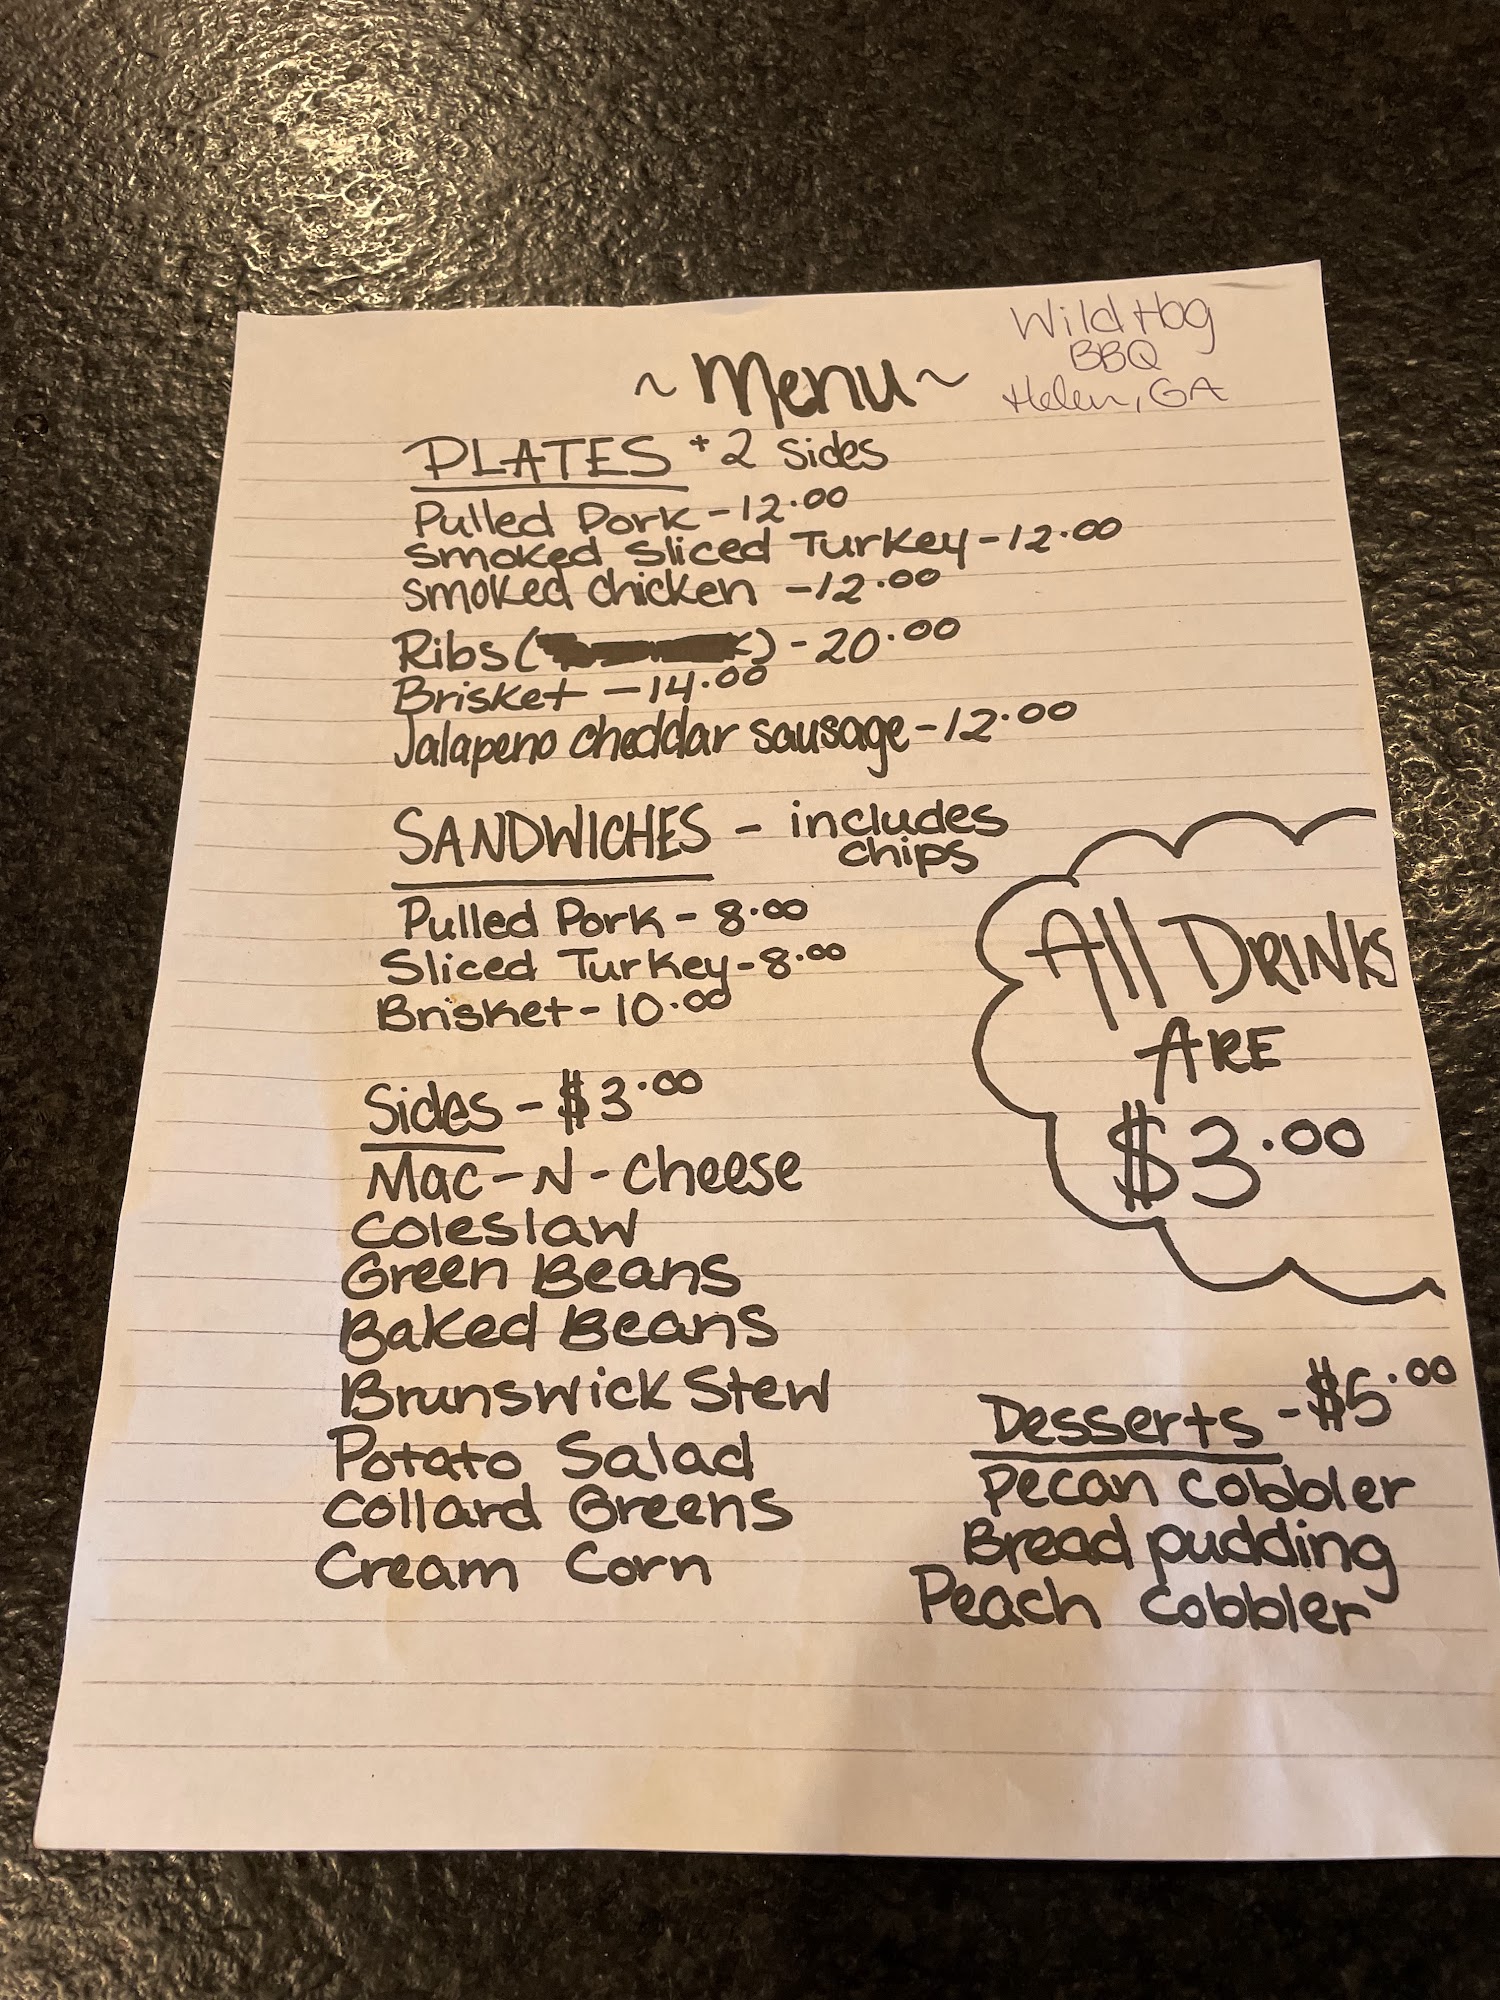 Wild Hog
BBQ
Helen, GA
~ Menu ~
PLATES + 2 sides
Pulled Pork - 12.00
Smoked Sliced Turkey - 12.00
Smoked chicken - 12.00
Ribs ( ) - 20.00
Brisket - 14.00
Jalapeno cheddar sausage - 12.00
SANDWICHES - includes
chips
Pulled Pork - 8.00
Sliced Turkey - 8.00
Brisket - 10.00
All DRINKS
ARE
$3.00
Sides - $3.00
Mac-N-cheese
Coleslaw
Green Beans
Baked Beans
Brunswick Stew
Potato Salad
Collard Greens
Cream Corn
Desserts - $5.00
Pecan Cobbler
Bread pudding
Peach Cobbler